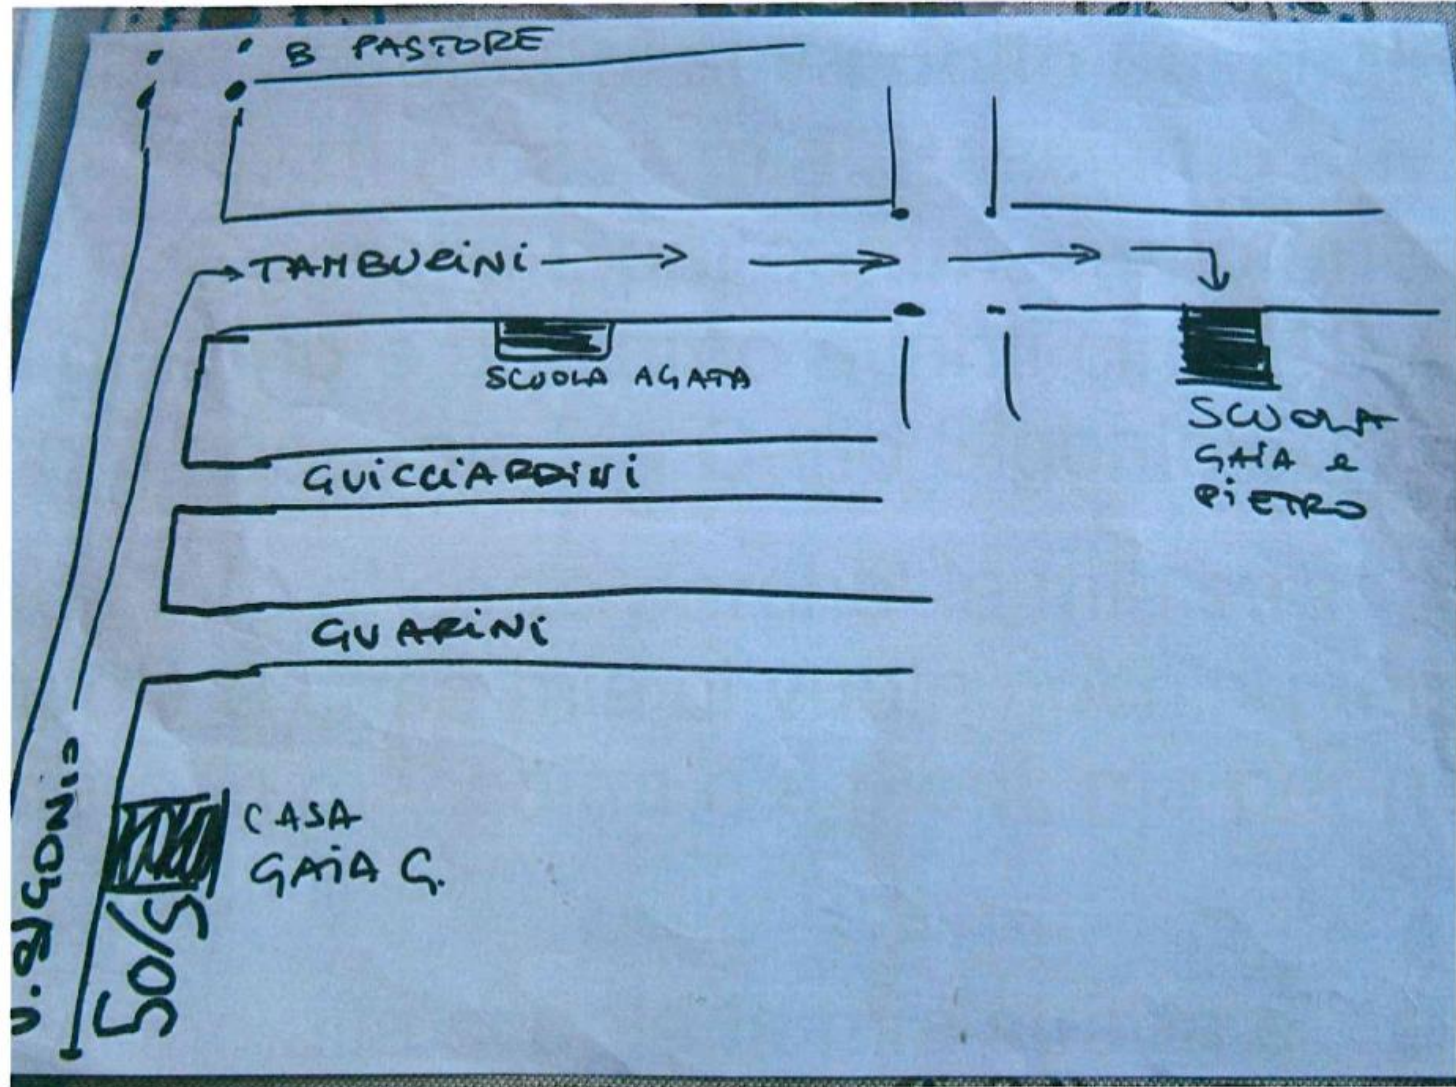 B PASTORE
TAMBURINI
SCUOLA AGATA
SCUOLA
GAIA e
PIETRO
GUICCIARDINI
GUARINI
CASA
GAIA G.
50/S